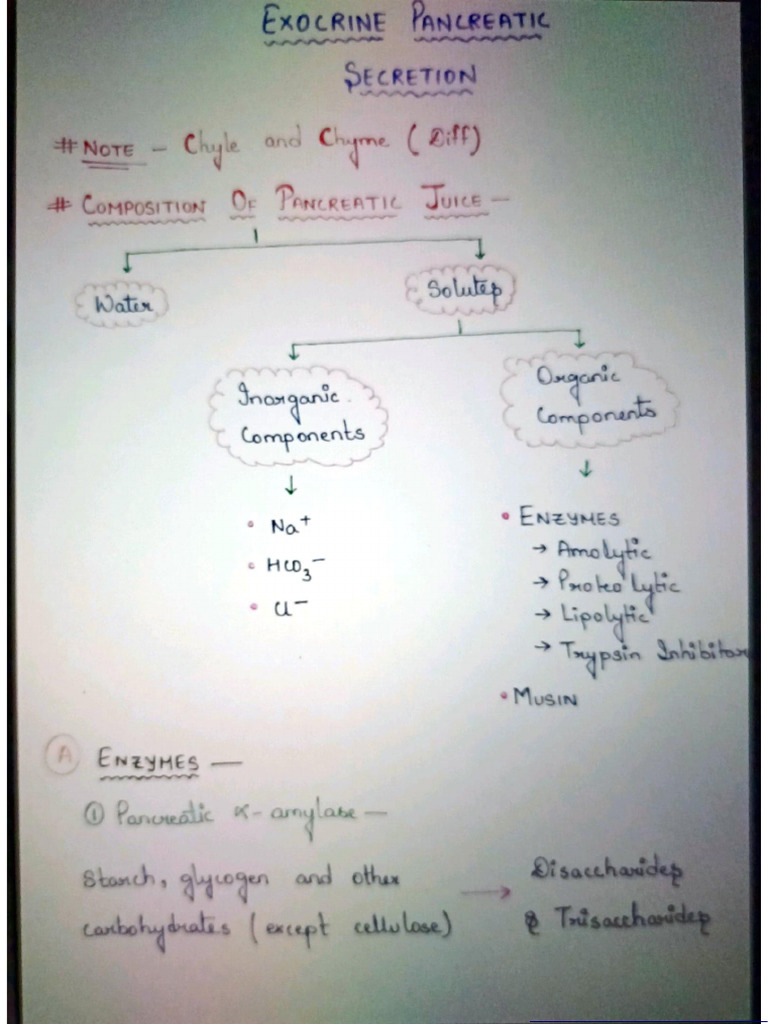 EXOCRINE PANCREATIC
SECRETION
# NOTE – Chyle and Chyme (Diff)
# COMPOSITION OF PANCREATIC JUICE –
Water
Solutes
Inorganic
Components
Organic
Components
• Na⁺
• HCO₃⁻
• Cl⁻
• ENZYMES
→ Amolytic
→ Proteolytic
→ Lipolytic
→ Trypsin Inhibitor
• MUSIN
Ⓐ ENZYMES –
① Pancreatic α-amylase –
Starch, glycogen and other
carbohydrates (except cellulose)
→ Disaccharides
& Trisaccharides